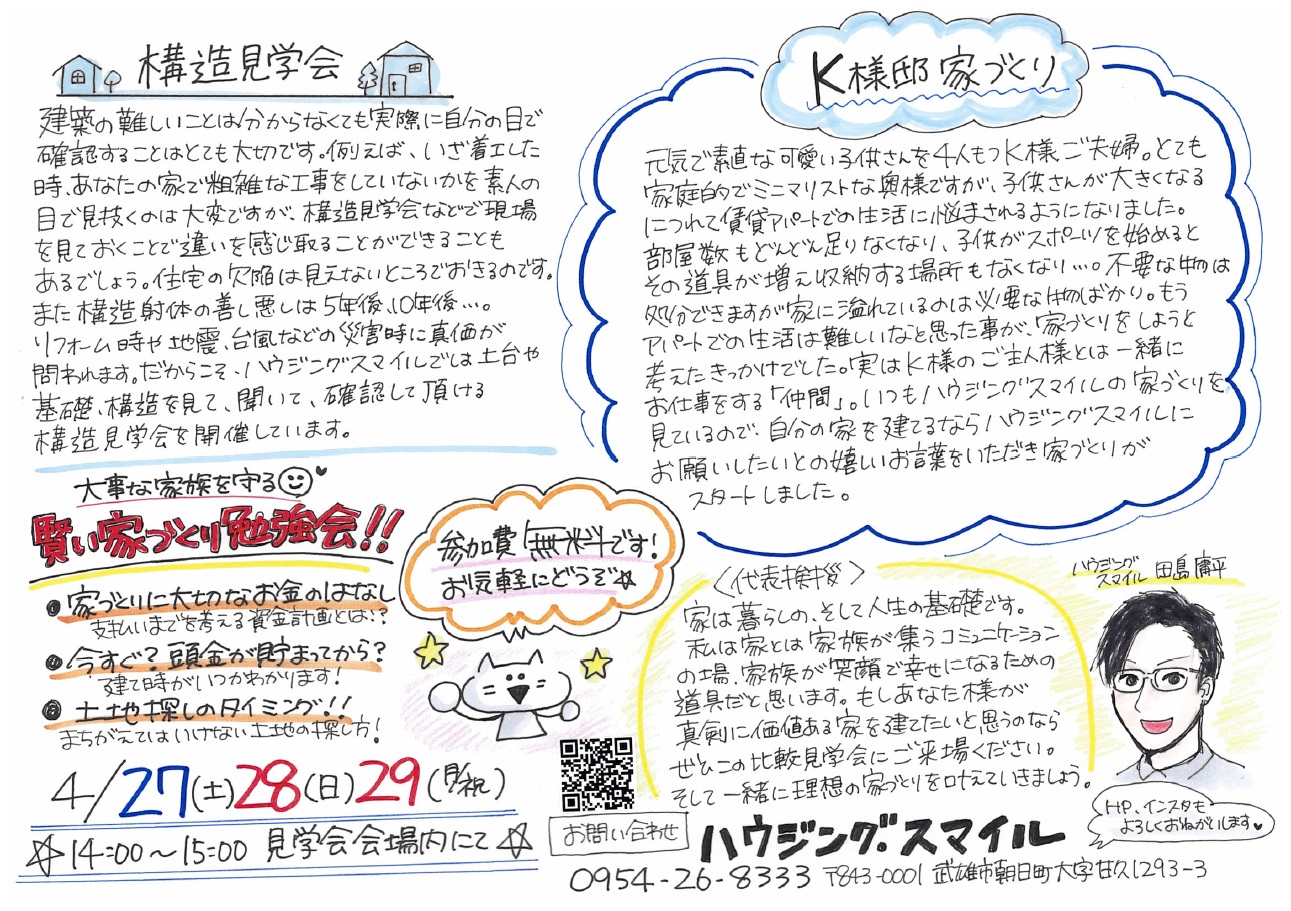 構造見学会
建築の難しいことは分からなくても実際に自分の目で
確認することはとても大切です。例えば、いざ着工した
時、あなたの家で粗雑な工事をしていないかを素人の
目で見抜くのは大変ですが、構造見学会などで現場
を見ておくことで違いを感じ取ることができることも
あるでしょう。住宅の欠陥は見えないところでおきるのです。
また構造躰体の善し悪しは5年後、10年後…。
リフォーム時や地震、台風などの災害時に真価が
問われます。だからこそ、ハウジングスマイルでは土台や
基礎、構造を見て、聞いて、確認して頂ける
構造見学会を開催しています。
K様邸 家づくり
元気で素直な可愛い子供さんを4人もつK様ご夫婦。とても
家庭的でミニマリストな奥様ですが、子供さんが大きくなる
につれて賃貸アパートでの生活に悩まされるようになりました。
部屋数もどんどん足りなくなり、子供がスポーツを始めると
その道具が増え収納する場所もなくなり…。不要な物は
処分できますが家に溢れているのは必要な物ばかり。もう
アパートでの生活は難しいなと思った事が、家づくりをしようと
考えたきっかけでした。実はK様のご主人様とは一緒に
お仕事をする「仲間」。いつもハウジングスマイルの家づくりを
見ているので、自分の家を建てるならハウジングスマイルに
お願いしたいとの嬉しいお言葉をいただき家づくりが
スタートしました。
大事な家族を守る
賢い家づくり勉強会!!
● 家づくりに大切なお金のはなし
支払いまでを考える資金計画とは!?
● 今すぐ?頭金が貯まってから?
建て時がいつかわかります!
● 土地探しのタイミング!!
まちがえてはいけない土地の探し方!
4/27(土)28(日)29(月/祝)
☆14:00〜15:00 見学会会場内にて☆
参加費無料です!
お気軽にどうぞ☆
〈代表挨拶〉
家は暮らしの、そして人生の基礎です。
私は家とは家族が集うコミュニケーション
の場、家族が笑顔で幸せになるための
道具だと思います。もしあなた様が
真剣に価値ある家を建てたいと思うのなら
ぜひこの比較見学会にご来場ください。
そして一緒に理想の家づくりを叶えていきましょう。
ハウジング
スマイル 田島 庸平
HP、インスタも
よろしくおねがいします♥
お問い合わせ ハウジングスマイル
0954-26-8333 〒843-0001 武雄市朝日町大字甘久1293-3